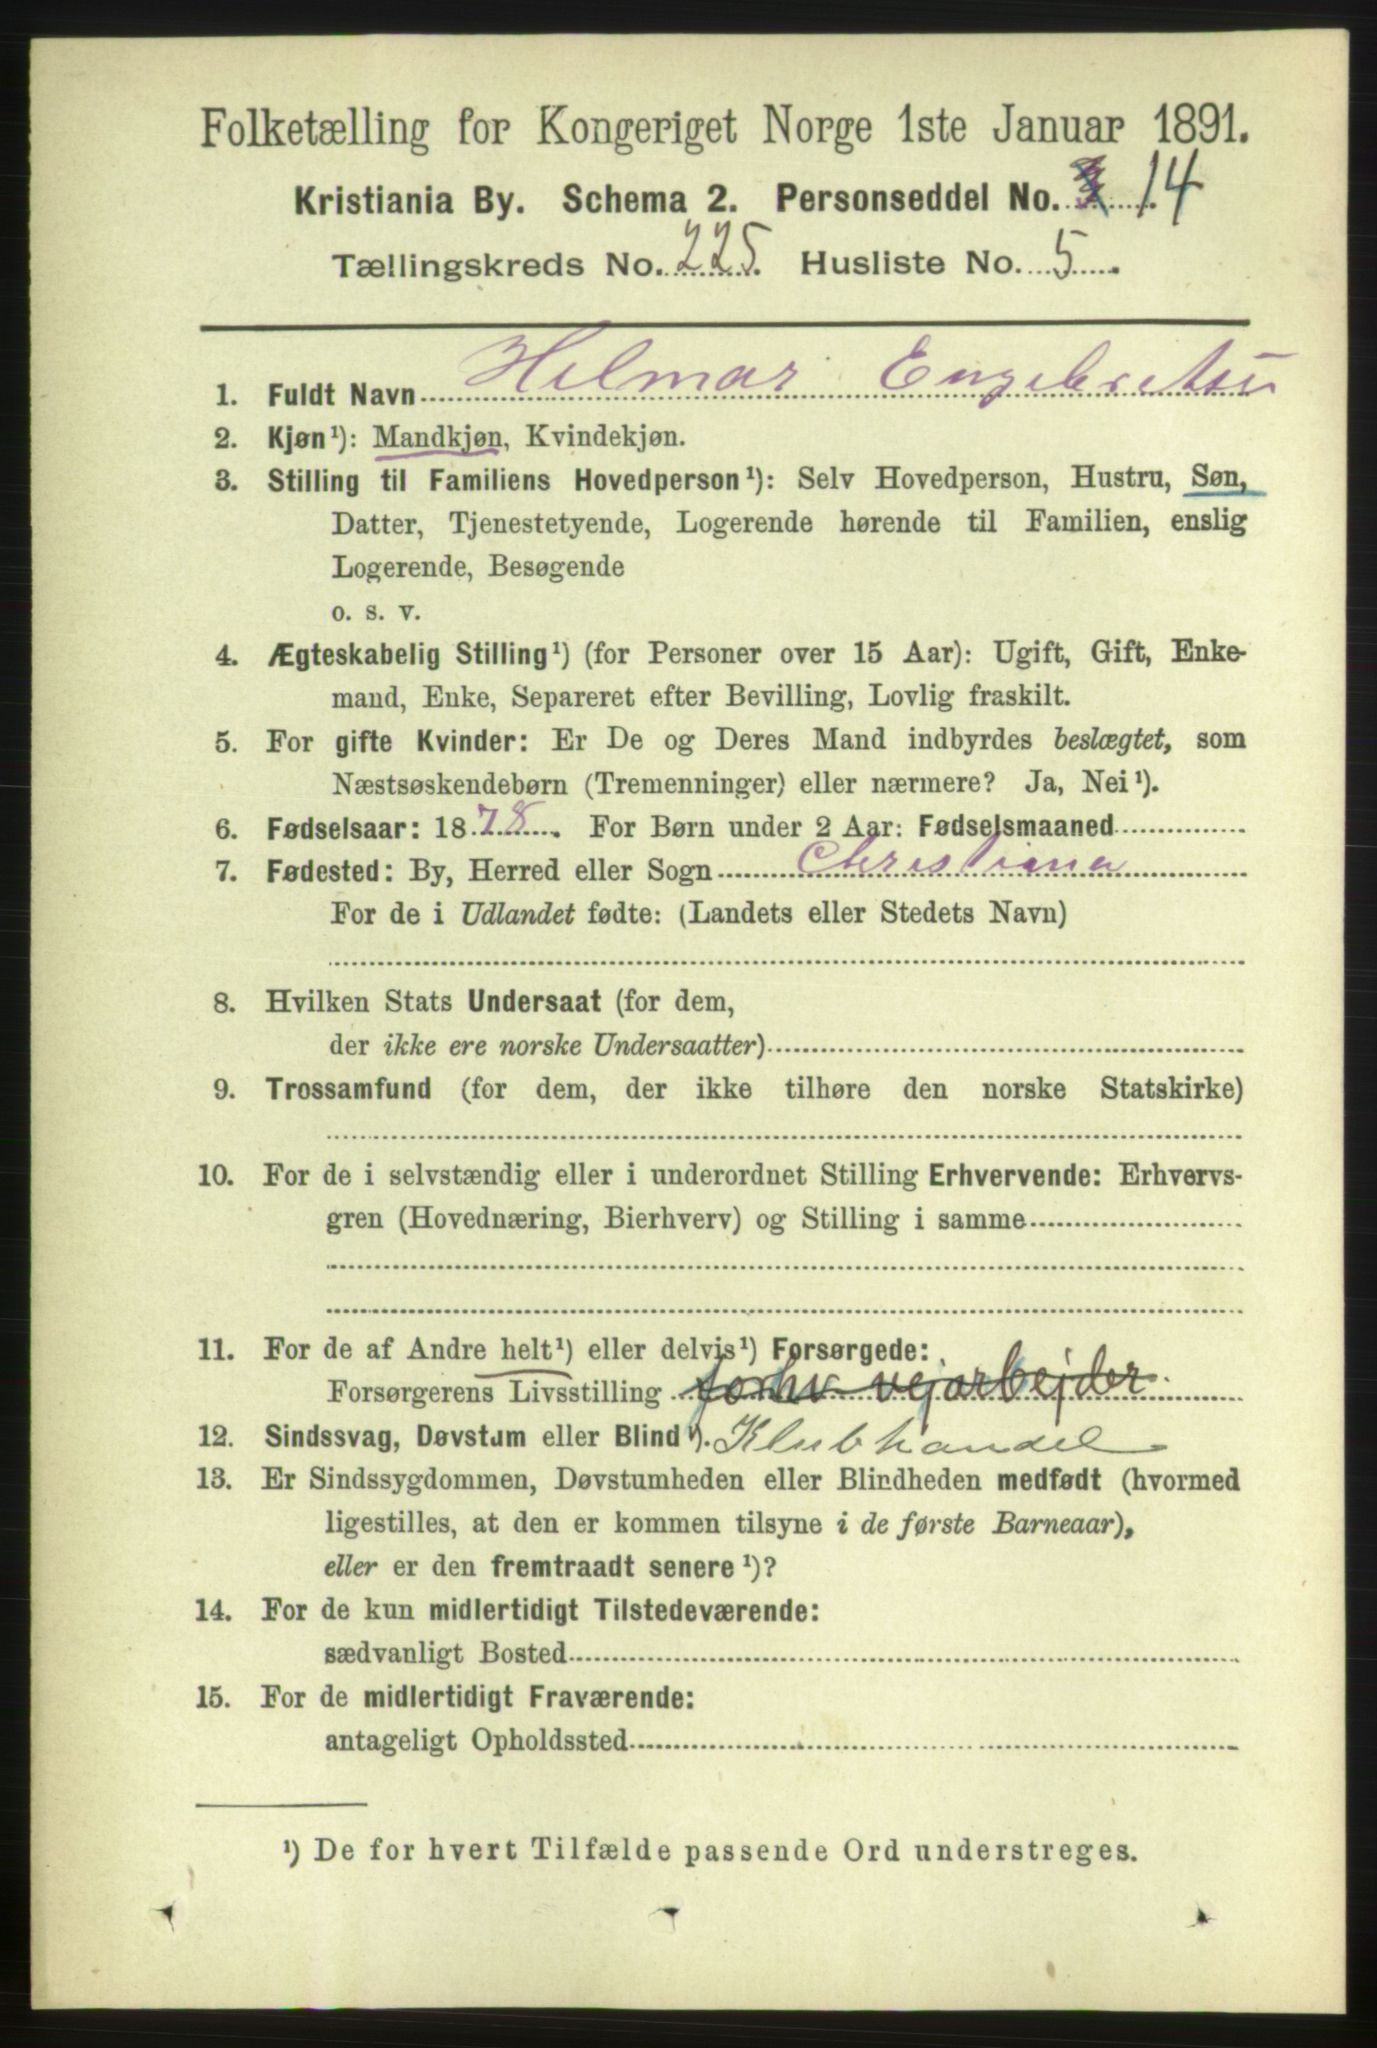 Folketælling for Kongeriget Norge 1ste Januar 1891.
Kristiania By. Schema 2. Personseddel No. 14
Tællingskreds No. 225. Husliste No. 5
1. Fuldt Navn Hilmar Engebretsen
2. Kjøn¹): Mandkjøn, Kvindekjøn.
3. Stilling til Familiens Hovedperson¹): Selv Hovedperson, Hustru, Søn,
Datter, Tjenestetyende, Logerende hørende til Familien, enslig
Logerende, Besøgende
o. s. v.
4. Ægteskabelig Stilling¹) (for Personer over 15 Aar): Ugift, Gift, Enke-
mand, Enke, Separeret efter Bevilling, Lovlig fraskilt.
5. For gifte Kvinder: Er De og Deres Mand indbyrdes beslægtet, som
Næstsøskendebørn (Tremenninger) eller nærmere? Ja, Nei¹).
6. Fødselsaar: 1878. For Børn under 2 Aar: Fødselsmaaned
7. Fødested: By, Herred eller Sogn Christiana
For de i Udlandet fødte: (Landets eller Stedets Navn)
8. Hvilken Stats Undersaat (for dem,
der ikke ere norske Undersaatter)
9. Trossamfund (for dem, der ikke tilhøre den norske Statskirke)
10. For de i selvstændig eller i underordnet Stilling Erhvervende: Erhvervs-
gren (Hovednæring, Bierhverv) og Stilling i samme
11. For de af Andre helt¹) eller delvis¹) Forsørgede:
Forsørgerens Livsstilling forhv vejarbejder
12. Sindssvag, Døvstum eller Blind¹). Klubhandel
13. Er Sindssygdommen, Døvstumheden eller Blindheden medfødt (hvormed
ligestilles, at den er kommen tilsyne i de første Barneaar),
eller er den fremtraadt senere¹)?
14. For de kun midlertidigt Tilstedeværende:
sædvanligt Bosted
15. For de midlertidigt Fraværende:
antageligt Opholdssted
¹) De for hvert Tilfælde passende Ord understreges.